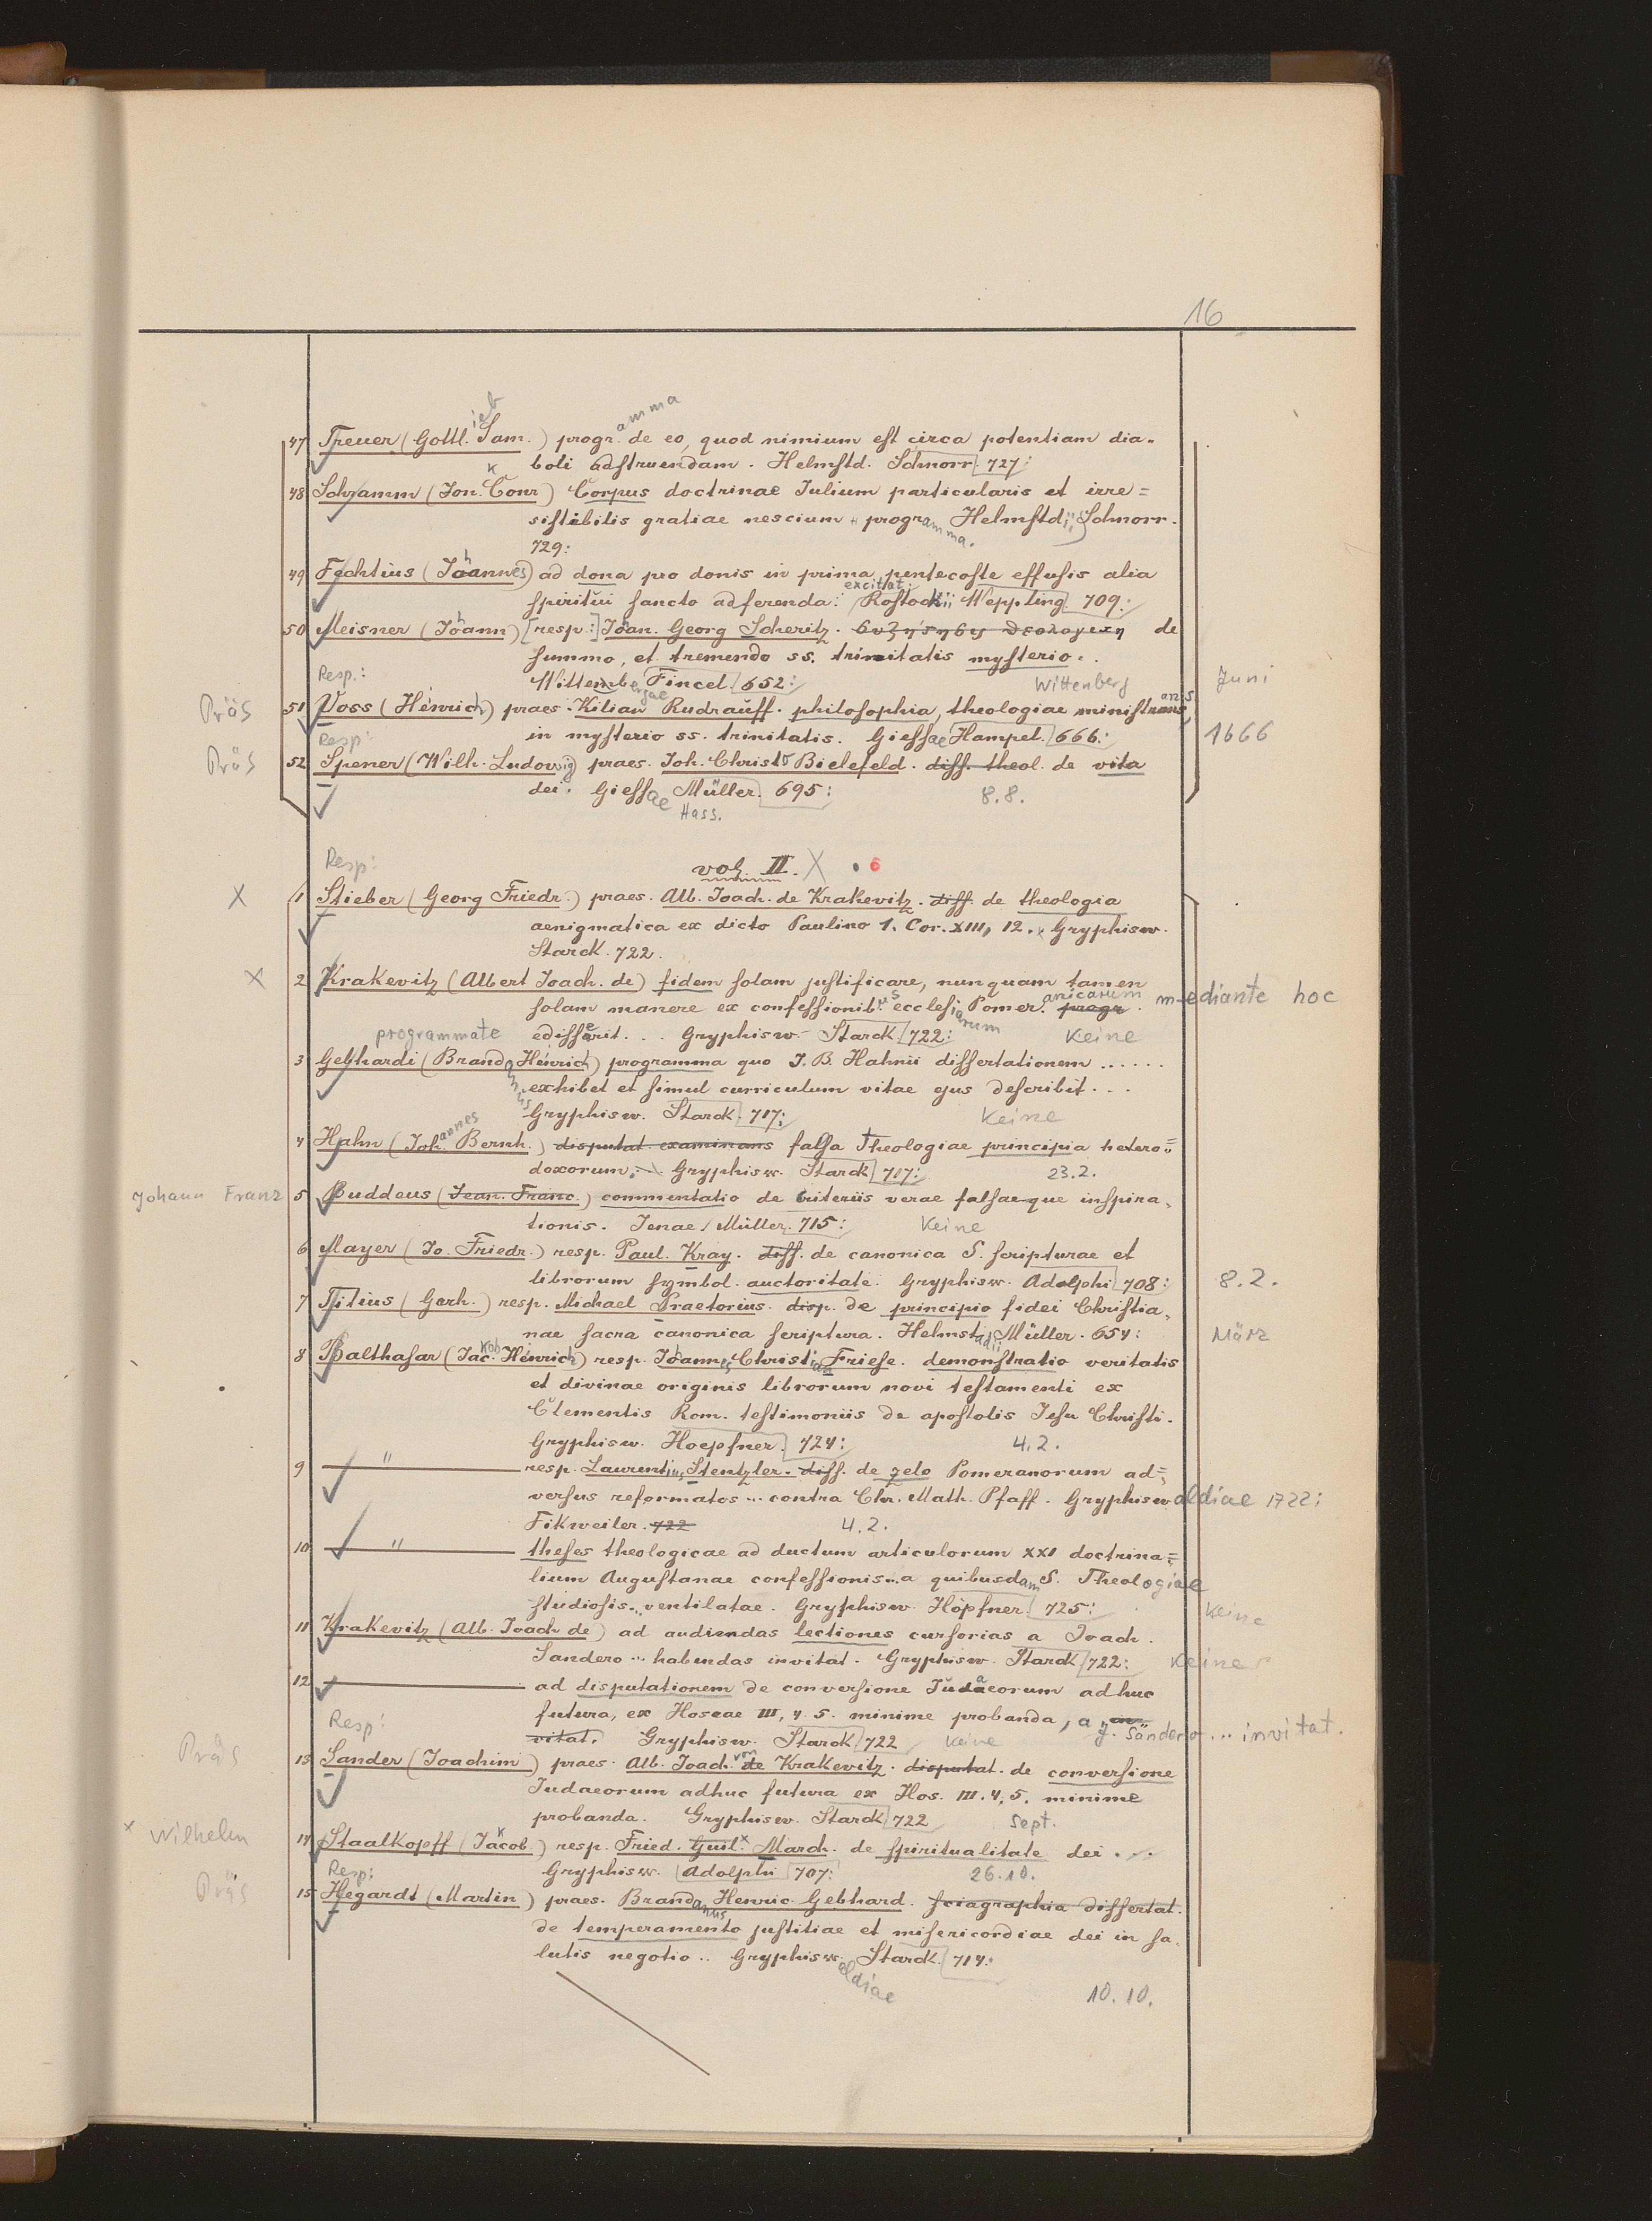 16
47 Treuer (Gottlieb Sam.) programma de eo, quod nimium est circa potentiam dia-
boli adstruendam. Helmstd. Schnorr. 727:
48 Schramm (Jon. Conr) Corpus doctrinae Iulium particularis et irre=
sistibilis gratiae nescium programma. Helmstd; Schnorr.
729:
49 Fechtius (Johannes) ad dona pro donis in prima pentecoste effusis alia
spiritui sancto adferenda: excitat: Rostockii Weppling. 709:
50 Meisner (Johann) [resp:] Joan. Georg Scheritz. de
summo, et tremendo ss. trinitatis mysterio.
Wittembergae Fincel. 652: Wittenberg Juni
Resp.:
Präs 51 Voss (Henrich) praes. Kilian Rudrauff. philosophia, theologiae ministrans,
in mysterio ss. trinitatis. Giessae Hampel. 666: 1666
Resp:
Präs 52 Spener (Wilh. Ludowig) praes. Joh. Christo Bielefeld. diss. theol. de vita
dei. Giessae Müller. 695: 8.8.
Hass.
Resp:
vol. II. X 6
X 1 Stieber (Georg Friedr.) praes. Alb. Joach. de Krakevitz. diss. de theologia
aenigmatica ex dicto Paulino 1. Cor. XIII, 12. Gryphisw.
Starck. 722.
X 2 Krakevitz (Albert Joach. de) fidem solam justificare, nunquam tamen
solam manere ex confessionibus ecclesiarum Pomeranicarum progr. mediante hoc
programmate edisserit... Gryphisw. Starck. 722: Keine
3 Gebhardi (Brandanus Henrich) programma quo J. B. Hahnii dissertationem ......
exhibet et simul curriculum vitae ejus describit...
Gryphisw. Starck. 717: Keine
4 Hahn (Johannes Bernh.) disputat. examinans falsa theologiae principia hetero=
doxorum... Gryphisw. Starck 717: 23.2.
Johann Franz 5 Buddeus (Jean. Franc.) commentatio de criteriis verae falsaeque inspira-
tionis. Jenae, Müller. 715: Keine
6 Mayer (Jo. Friedr.) resp. Paul. Kray. diss. de canonica S. scripturae et
librorum symbol. auctoritate. Gryphisw. Adolphi 708: 8.2.
7 Titius (Gerh.) resp. Michael Praetorius. disp. de principio fidei Christia-
nae sacra canonica scriptura. Helmstadii Müller. 654: März
8 Balthasar (Jakob Henrich) resp. Johannes Christian Friese. demonstratio veritatis
et divinae originis librorum novi testamenti ex
Clementis Rom. testimoniis de apostolis Jesu Christi.
Gryphisw. Hoepfner. 724: 4.2.
9 " resp. Laurentius Stentzler. diss. de zelo Pomeranorum ad=
versus reformatos... contra Chr. Math. Pfaff. Gryphiswaldiae 1722:
Fikweiler. 722 4.2.
10 " theses theologicae ad ductum articulorum XXI doctrina=
lium Augustanae confessionis... a quibusdam S. Theologiae
studiosis... ventilatae. Gryphisw. Höpfner. 725: Keine
11 Krakevitz (Alb. Joach de) ad audiendas lectiones cursorias a Joach.
Sandero... habendas invitat. Gryphisw. Starck 722: Keine
12 ad disputationem de conversione Judaeorum adhuc
futura, ex Hoseae III, 4. 5. minime probanda, a J. Sandero... invitat.
vitat. Gryphisw. Starck 722 Keine
Resp:
Präs 13 Sander (Joachim) praes. Alb. Joach. von de Krakevitz. disputat. de conversione
Judaeorum adhuc futura ex Hos. III. 4. 5. minime
probanda. Gryphisw. Starck 722 Sept.
x Wilhelm 14 Staalkopff (Jakob.) resp. Fried. Guil. x March. de spiritualitate dei...
Gryphisw. Adolphi 707: 26.10.
Resp:
Präs 15 Hegardt (Martin) praes. Brandanus Henric. Gebhard. sciagraphia dissertat.
de temperamento justitiae et misericordiae dei in sa-
lutis negotio.. Gryphiswaldiae Starck. 714:
10.10.